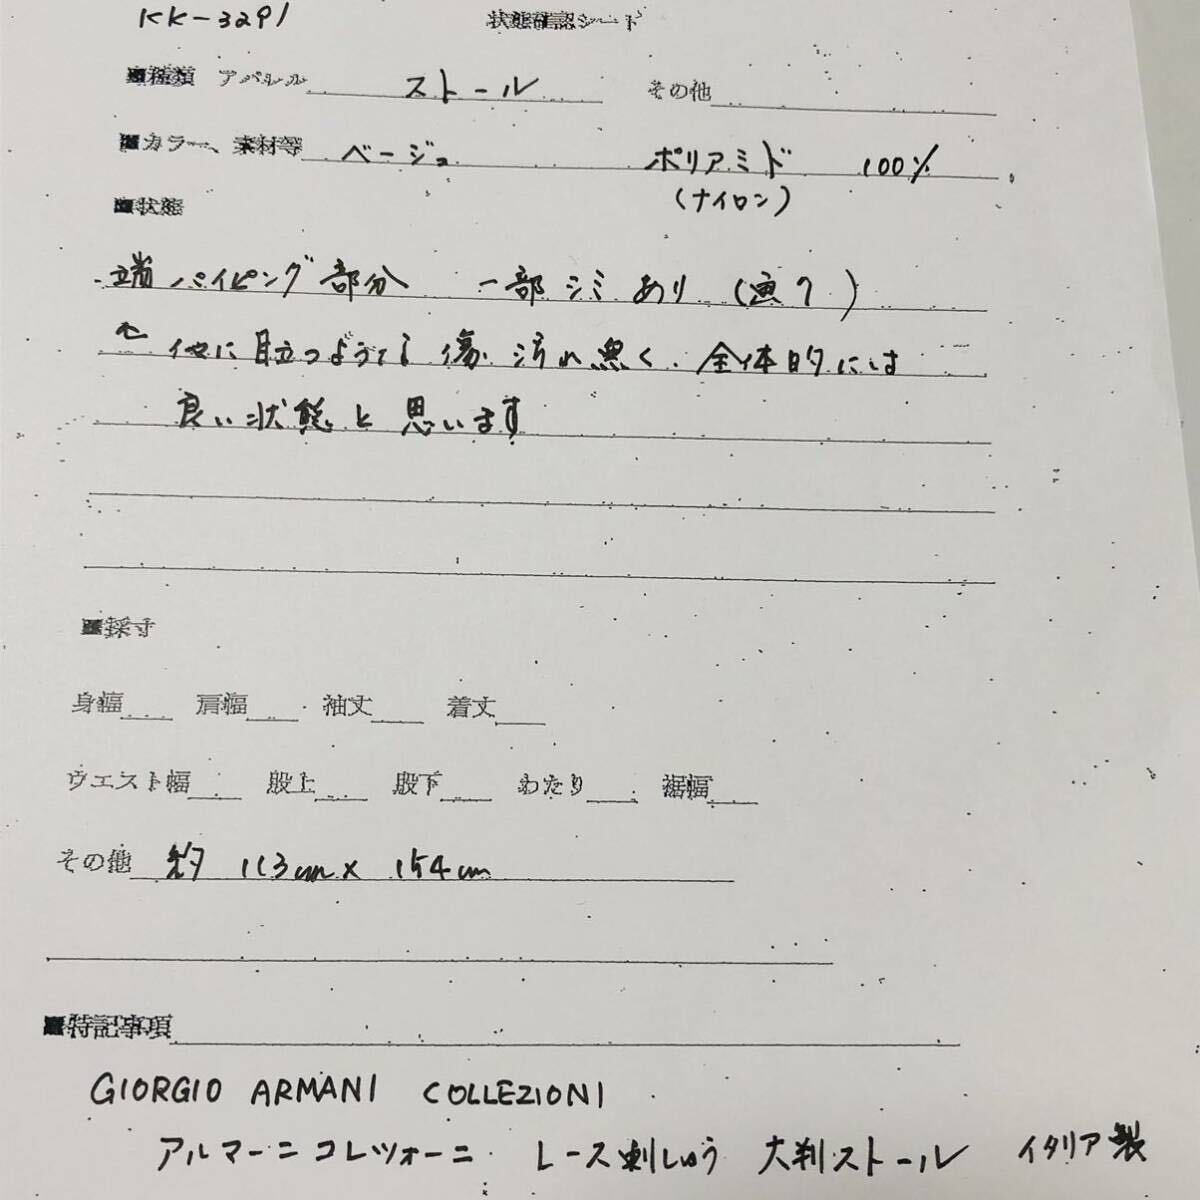 KK-3291 状態確認シート
■種類 アパレル ストール その他
■カラー、素材等 ベージュ ポリアミド 100%
(ナイロン)
■状態
・端パイピング部分 一部シミあり (画7)
他に目立つような傷、汚れ無く、全体的には
良い状態と思います
■採寸
身幅 肩幅 袖丈 着丈
ウエスト幅 股上 股下 わたり 裾幅
その他 約 113cm × 154cm
■特記事項
GIORGIO ARMANI COLLEZIONI
アルマーニ コレツォーニ レース刺しゅう 大判ストール イタリア製